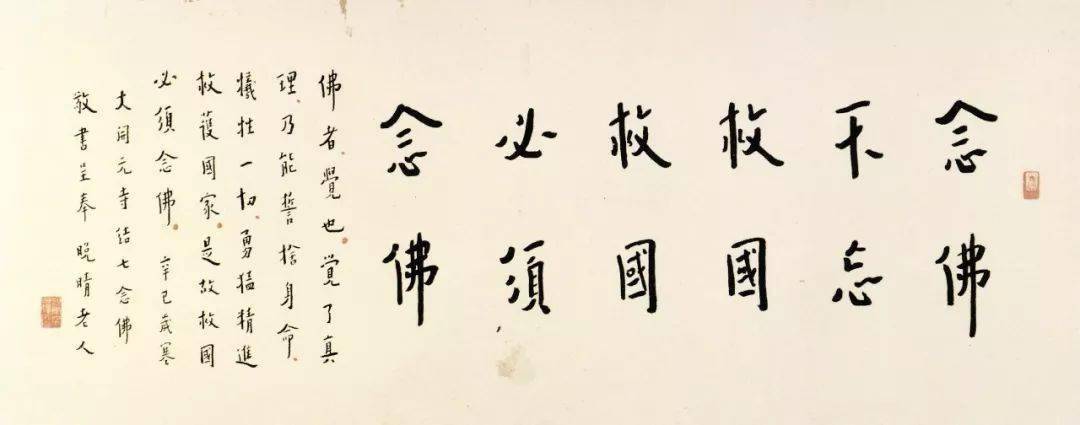 念佛
不忘
救國
救國
必須
念佛
佛者覺也覺了真
理乃能誓捨身命
犧牲一切勇猛精進
救護國家是故救國
必須念佛 辛巳歲寒
大開元寺結七念佛
敬書呈奉 晚晴老人